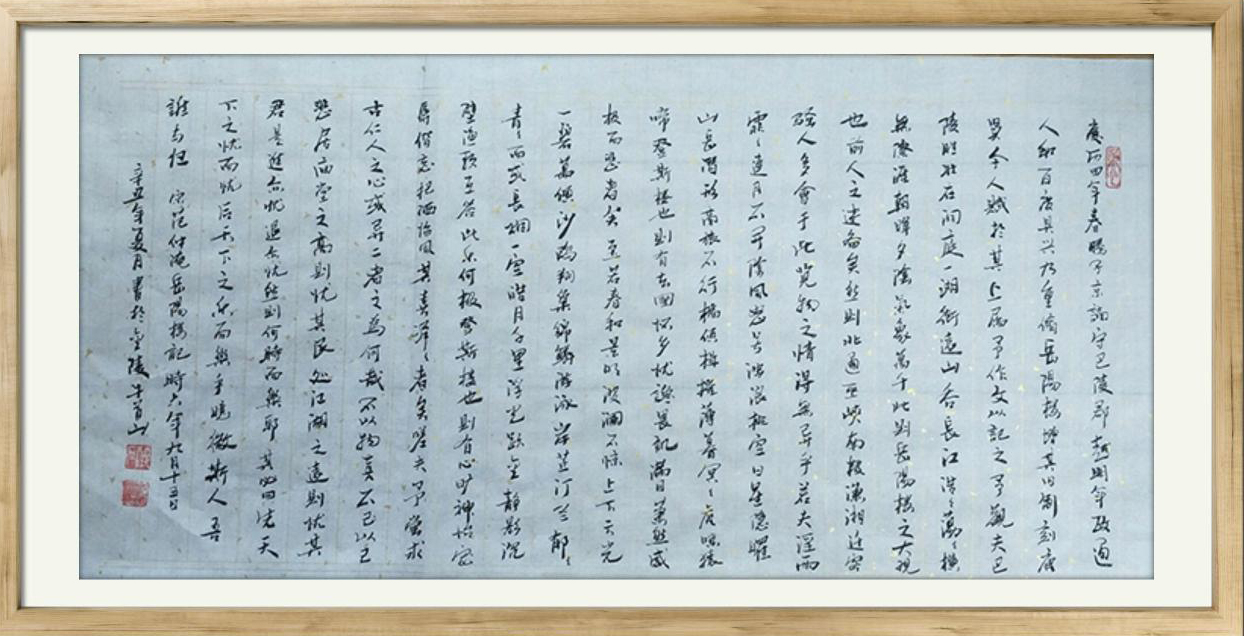 慶历四年春滕子京謫守巴陵郡越明年政通
人和百废具兴乃重修岳陽樓增其旧制刻唐
賢今人賦於其上屬予作文以記之予觀夫巴
陵勝狀在洞庭一湖銜遠山吞長江浩浩蕩蕩橫
無際涯朝暉夕陰氣象萬千此則岳陽樓之大觀
也前人之述备矣然則北通巫峡南极瀟湘迁客
骚人多會于此览物之情得無異乎若夫淫雨
霏〻連月不開陰風怒号浊浪排空日星隱曜
山岳潛形商旅不行檣傾楫摧薄暮冥〻虎嘯猿
啼登斯樓也則有去國怀乡忧讒畏譏滿目蕭然感
极而悲者矣至若春和景明波澜不惊上下天光
一碧萬頃沙鷗翔集錦鱗游泳岸芷汀兰郁〻
青〻而或長烟一空皓月千里浮光跃金静影沉
璧渔歌互答此乐何极登斯樓也則有心旷神怡宠
辱偕忘把酒临风其喜洋〻者矣嗟夫予嘗求
古仁人之心或异二者之為何哉不以物喜不已以己
悲居庙堂之高則忧其民处江湖之遠則忧其
君是進亦忧退亦忧然則何時而樂耶其必曰先天
下之忧而忧后天下之乐而樂乎噫微斯人吾
誰与归 宋范仲淹岳陽樓記時六年九月十五日
辛丑年夏月書於金陵牛首山